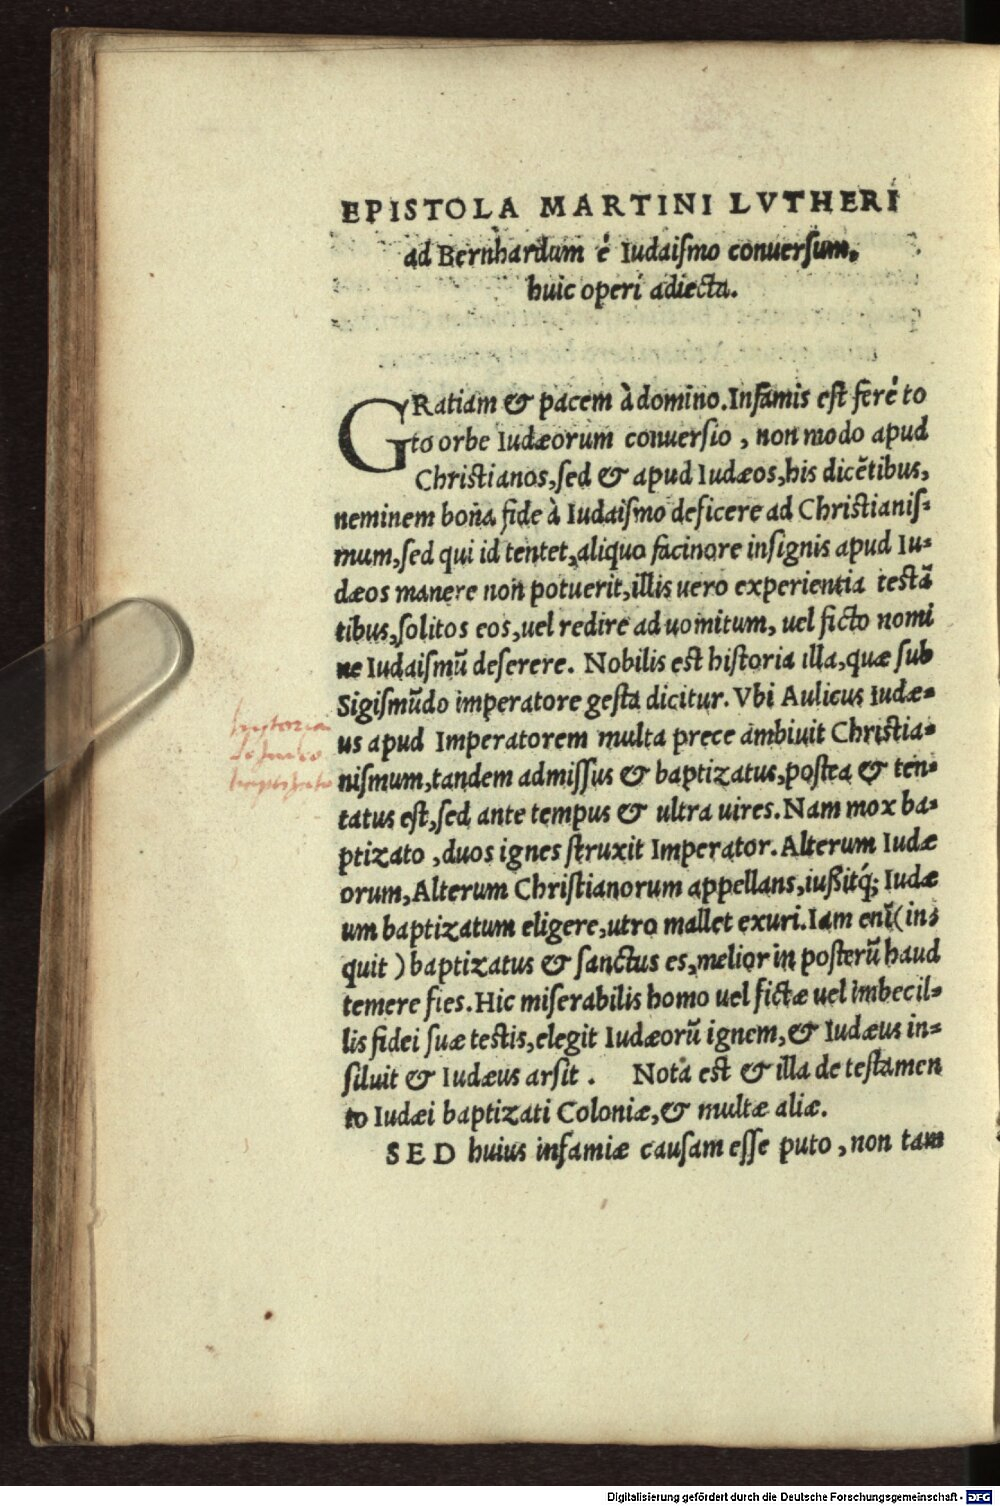 EPISTOLA MARTINI LVTHERI
ad Bernhardum è Iudaiſmo conuerſum,
huic operi adiecta.
GRatiam & pacem à domino. Infamis eſt ferè to
to orbe Iudæorum conuerſio, non modo apud
Chriſtianos, ſed & apud Iudæos, his dicẽtibus,
neminem bona fide à Iudaiſmo deficere ad Chriſtianiſ-
mum, ſed qui id tentet, aliquo facinore inſignis apud Iu-
dæos manere non potuerit, illis uero experientia teſtã
tibus, ſolitos eos, uel redire ad uomitum, uel ficto nomi
ne Iudaiſmũ deſerere. Nobilis eſt hiſtoria illa, quæ ſub
Sigiſmũdo imperatore geſta dicitur. Vbi Aulicus Iudæ-
us apud Imperatorem multa prece ambiuit Chriſtia-
niſmum, tandem admiſſus & baptizatus, poſtea & ten-
tatus eſt, ſed ante tempus & ultra uires. Nam mox ba-
ptizato, duos ignes ſtruxit Imperator. Alterum Iudæ
orum, Alterum Chriſtianorum appellans, iußitq́; Iudæ
um baptizatum eligere, utro mallet exuri. Iam enĩ (in-
quit) baptizatus & ſanctus es, melior in poſterũ haud
temere fies. Hic miſerabilis homo uel fictæ uel imbecil-
lis fidei ſuæ teſtis, elegit Iudæorũ ignem, & Iudæus in-
ſiluit & Iudæus arſit. Nota eſt & illa de teſtamen
to Iudæi baptizati Coloniæ, & multæ aliæ.
SED huius infamiæ cauſam eſſe puto, non tam
historia
de Iudeo
baptizato
Digitalisierung gefördert durch die Deutsche Forschungsgemeinschaft - DFG